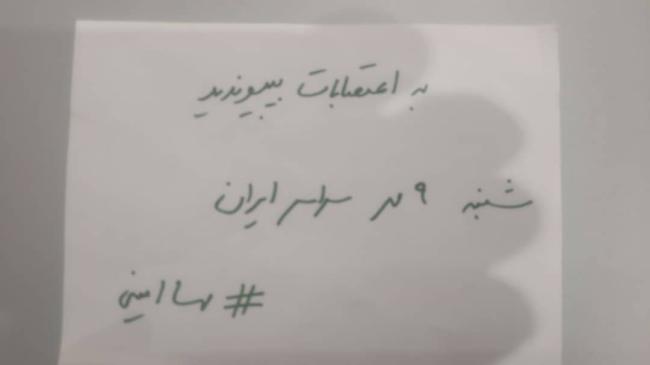 به اعتصابات بپیوندید
شنبه ۹ مهر سراسر ایران
#مهساامینی